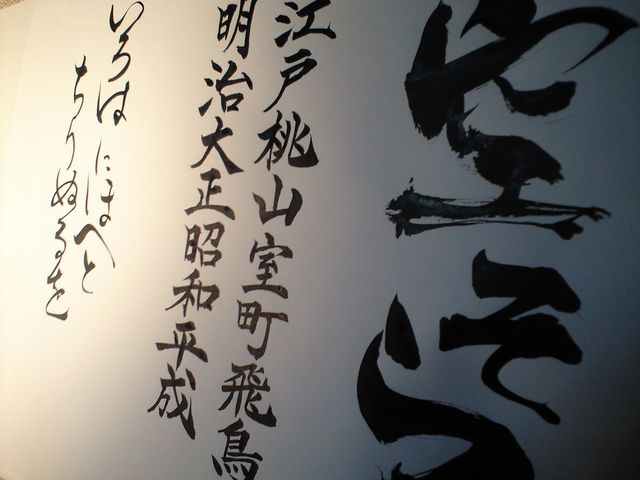 空そら
江戸桃山室町飛鳥
明治大正昭和平成
いろはにほへと
ちりぬるを